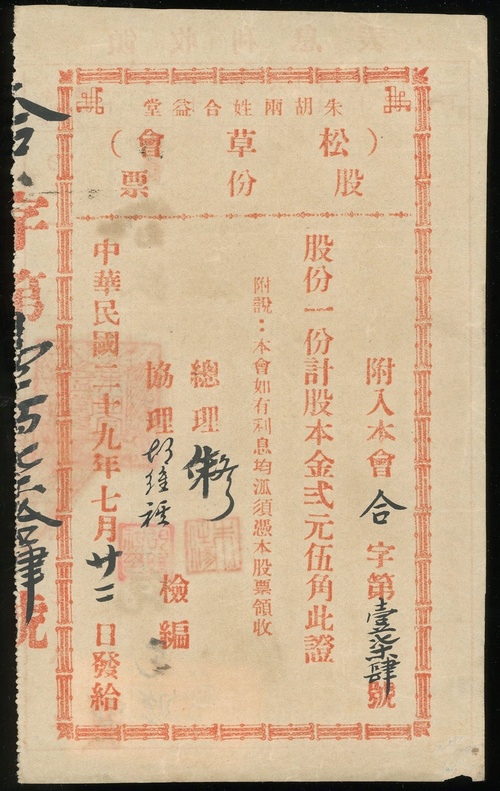 朱胡兩姓合益堂
（松草會）
股份票
附入本會合字第壹柒肆號
股份一份計股本金弍元伍角此證
附說：本會如有利息均派須憑本股票領收
總理
協理 胡維
檢編
中華民國二十九年七月廿二日發給
合字第壹百柒拾肆號